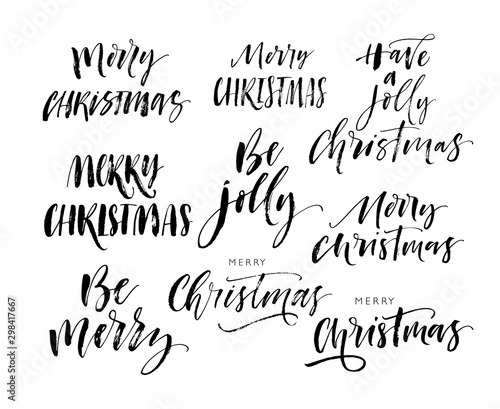 Merry
CHRISTMAS
Merry
CHRISTMAS
Have
a
jolly
Christmas
MERRY
CHRISTMAS
Be
jolly
Merry
christmas
Be
Merry
MERRY
Christmas
MERRY
Christmas
Adobe Stock | #298417667